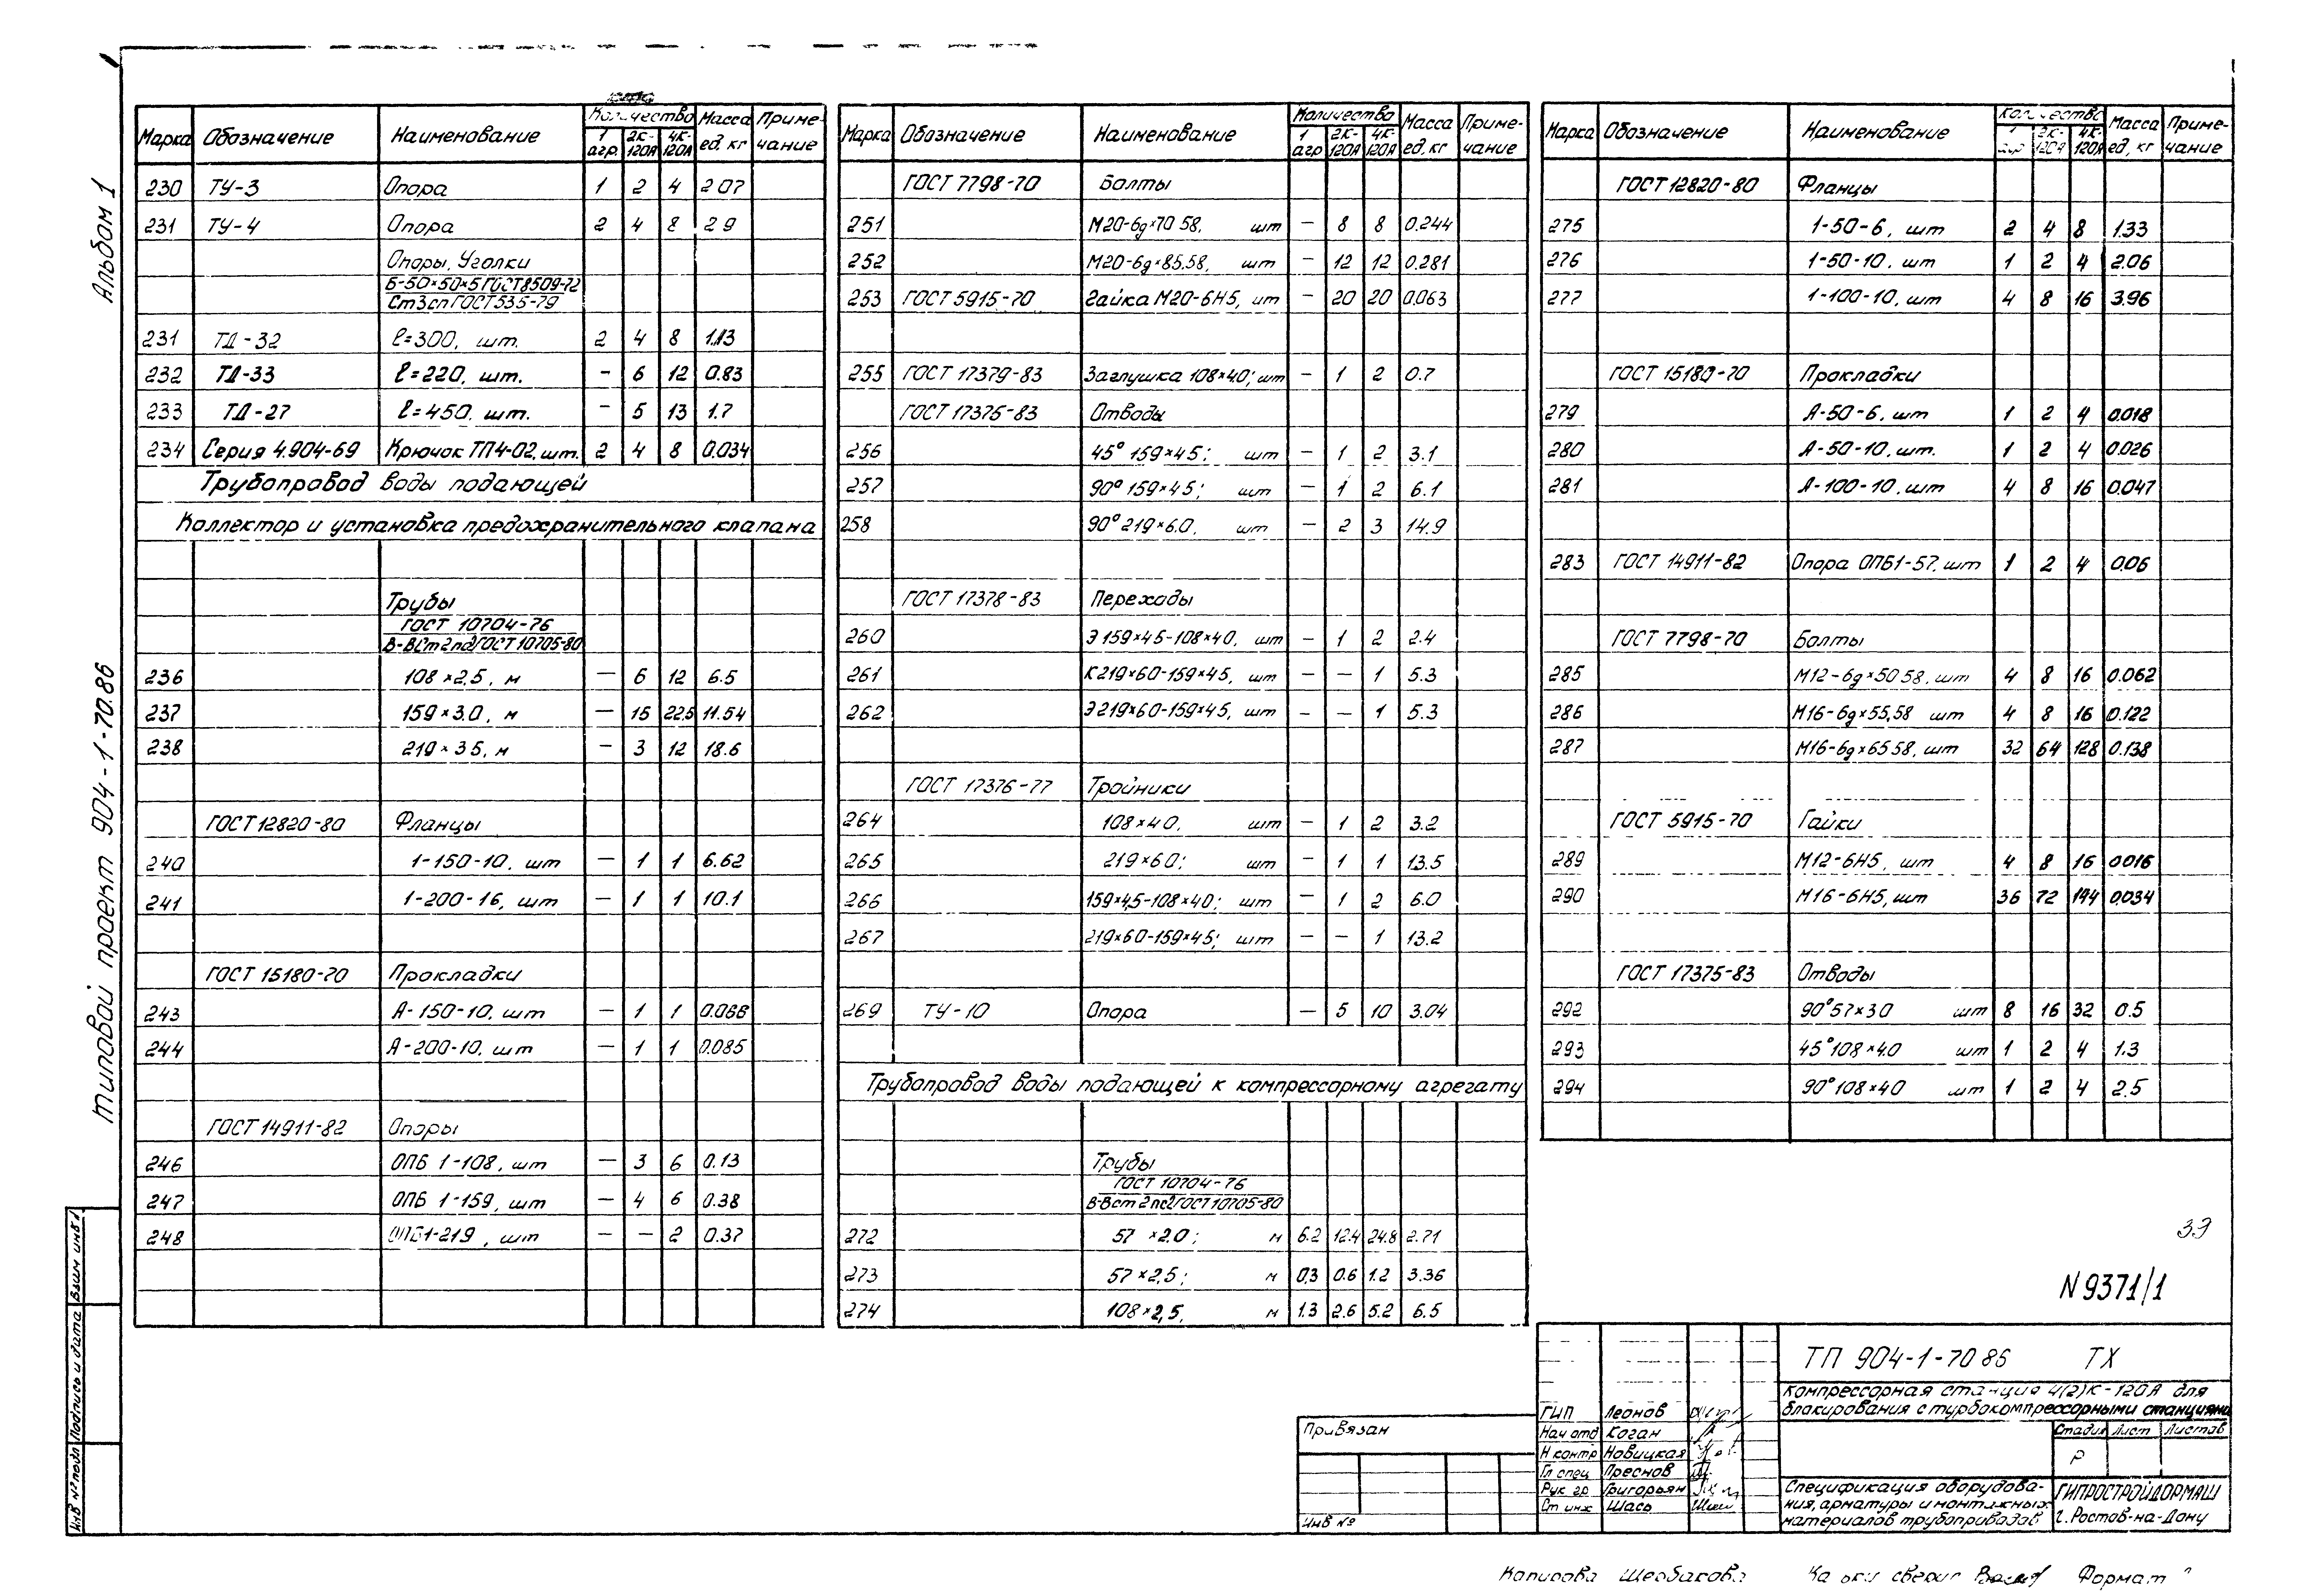 Альбом 1
Типовой проект 904-1-70.86
Марка Обозначение Наименование Количество Масса ед. кг Приме-чание
1 агр. 2К-120А 4К-120А
230 ТУ-3 Опора 1 2 4 2 07
231 ТУ-4 Опора 2 4 8 2 9
Опоры, Уголки
Б-50×50×5 ГОСТ 8509-72
Ст3сп ГОСТ 535-79
231 ТД-32 ℓ=300, шт. 2 4 8 1.13
232 ТД-33 ℓ=220, шт. - 6 12 0.83
233 ТД-27 ℓ=450, шт. - 5 13 1.7
234 Серия 4.904-69 Крючок ТП4-02, шт. 2 4 8 0.034
Трубопровод воды подающей
Коллектор и установка предохранительного клапана
Трубы
ГОСТ 10704-76
В-ВСт2пс2 ГОСТ 10705-80
236 108×2,5, м — 6 12 6.5
237 159×3.0, м — 15 22.5 11.54
238 219×3 5, м — 3 12 18.6
ГОСТ 12820-80 Фланцы
240 1-150-10, шт — 1 1 6.62
241 1-200-16, шт — 1 1 10.1
ГОСТ 15180-70 Прокладки
243 А-150-10, шт — 1 1 0.066
244 А-200-10, шт — 1 1 0.085
ГОСТ 14911-82 Опоры
246 ОПБ 1-108, шт — 3 6 0.13
247 ОПБ 1-159, шт — 4 6 0.38
248 ОПБ1-219, шт — — 2 0.37
Марка Обозначение Наименование Количество Масса ед. кг Приме-чание
1 агр 2К-120А 4К-120А
ГОСТ 7798-70 Болты
251 М20-6g×70 58, шт — 8 8 0.244
252 М20-6g×85.58, шт — 12 12 0.281
253 ГОСТ 5915-70 Гайка М20-6Н5, шт — 20 20 0.063
255 ГОСТ 17379-83 Заглушка 108×40; шт — 1 2 0.7
ГОСТ 17375-83 Отводы
256 45° 159×4 5; шт — 1 2 3.1
257 90° 159×4 5; шт — 1 2 6.1
258 90° 219×6.0, шт — 2 3 14.9
ГОСТ 17378-83 Переходы
260 Э 159×4 5-108×40, шт — 1 2 2.4
261 К 219×60-159×45, шт — — 1 5.3
262 Э 219×60-159×45, шт — — 1 5.3
ГОСТ 17376-77 Тройники
264 108×4 0, шт — 1 2 3.2
265 219×6 0; шт — 1 1 13.5
266 159×4,5-108×40; шт — 1 2 6.0
267 219×60-159×45; шт — — 1 13.2
269 ТУ-10 Опора — 5 10 3.04
Трубопровод воды подающей к компрессорному агрегату
Трубы
ГОСТ 10704-76
В-Вст2пс2 ГОСТ 10705-80
272 57 ×2.0; м 6.2 12.4 24.8 2.71
273 57×2,5; м 0,3 0.6 1.2 3.36
274 108×2,5, м 1.3 2.6 5.2 6.5
Марка Обозначение Наименование Количество Масса ед, кг Приме-чание
1 агр 2К-120А 4К-120А
ГОСТ 12820-80 Фланцы
275 1-50-6, шт 2 4 8 1.33
276 1-50-10, шт 1 2 4 2.06
277 1-100-10, шт 4 8 16 3.96
ГОСТ 15180-70 Прокладки
279 А-50-6, шт 1 2 4 0.018
280 А-50-10, шт. 1 2 4 0.026
281 А-100-10, шт 4 8 16 0.047
283 ГОСТ 14911-82 Опора ОПБ1-57, шт 1 2 4 0.06
ГОСТ 7798-70 Болты
285 М12-6g×50 58, шт 4 8 16 0.062
286 М16-6g×55,58 шт 4 8 16 0.122
287 М16-6g×65 58, шт 32 64 128 0.138
ГОСТ 5915-70 Гайки
289 М12-6Н5, шт 4 8 16 0.016
290 М16-6Н5, шт 36 72 144 0.034
ГОСТ 17375-83 Отводы
292 90° 57×3 0 шт 8 16 32 0.5
293 45° 108×4.0 шт 1 2 4 1.3
294 90° 108×4 0 шт 1 2 4 2.5
39
N 9371/1
ТП 904-1-70 86 ТХ
Компрессорная станция 4(2)К-120А для
блокирования с турбокомпрессорными станциями
ГИП Леонов
Нач отд Коган
Н контр Новицкая
Гл спец Преснов
Рук гр Григорьян
Ст инж Шась
Стадия Лист Листов
Р
Спецификация оборудова-
ния, арматуры и монтажных
материалов трубопроводов
ГИПРОСТРОЙДОРМАШ
г. Ростов-на-Дону
Привязан
Инв №
Инв № подл Подпись и дата Взам инв №
Копировал Щербакова
Формат